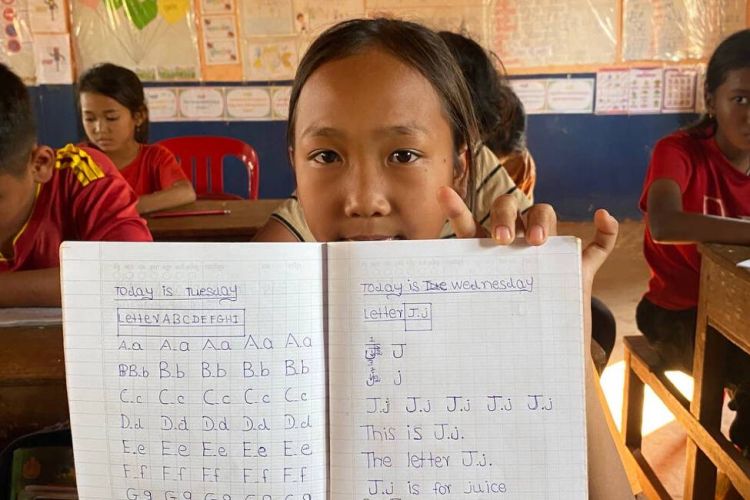 Today is Tuesday
Letter ABCDEFGHI
A.a A.a A.a A.a A.a
B.b B.b B.b B.b B.b
C.c C.c C.c C.c C.c
D.d D.d D.d D.d D.d
E.e E.e E.e E.e E.e
F.f F.f F.f F.f F.f
G.g G.g G.g G.g G.g
Today is Wednesday
Letter J.j
J
j
J.j J.j J.j J.j J.j
This is J.j.
The letter J.j.
J.j is for juice